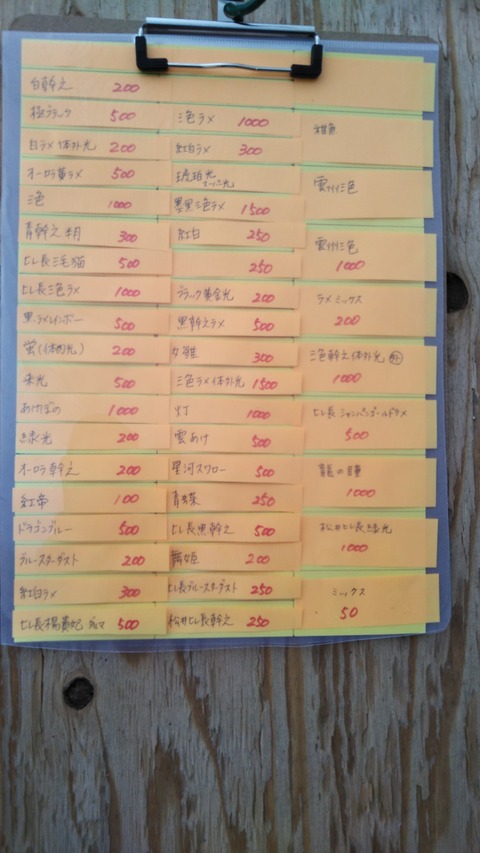 白幹之 200
極ブラック 500
白ラメ体外光 200
オーロラ黄ラメ 500
三色 1000
青幹之 半月 300
ヒレ長三毛猫 500
ヒレ長三色ラメ 1000
黒ラメレインボー 500
蛍(体内光) 200
来光 500
あけぼの 1000
緑光 200
オーロラ幹之 200
紅帝 100
ドラゴンブルー 500
ブルースターダスト 200
紅白ラメ 300
ヒレ長楊貴妃 ダルマ 500
三色ラメ 1000
紅白ラメ 300
琥珀光
スーパー光
墨黒三色ラメ 1500
紅白 250
250
ブラック黄金光 200
黒幹之ラメ 500
女雛 300
三色ラメ体外光 1500
灯 1000
雲あけ 500
星河スワロー 500
青葉 250
ヒレ長黒幹之 500
舞姫 200
ヒレ長ブルースターダスト 250
松井ヒレ長幹之 250
雑魚
雲州三色
雲州三色
1000
ラメミックス
200
三色幹之体外光
1000
ヒレ長シャンパンゴールドラメ
500
龍の瞳
1000
松井ヒレ長緑光
1000
ミックス
50